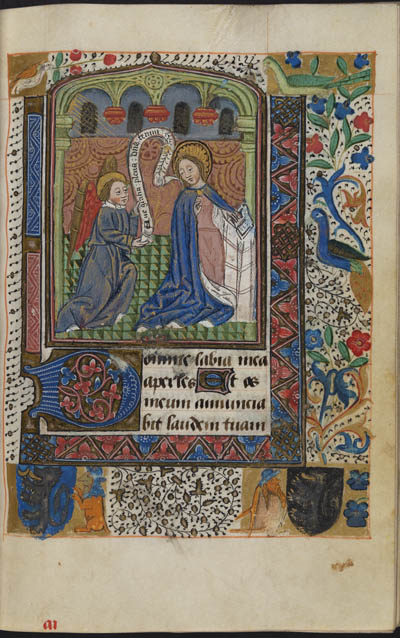 Aue gracia plena dns tecum
Domine labia mea
aperies Et os
meum annuncia
bit laudem tuam